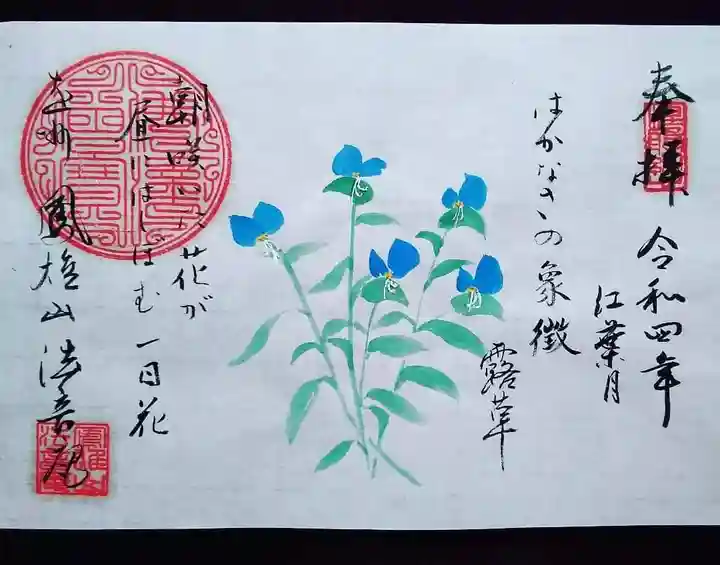 奉拝
令和四年
江葉月
はかなさの象徴
露草
朝咲いた花が
昼にはしぼむ
一日花
鳳雄山法善院